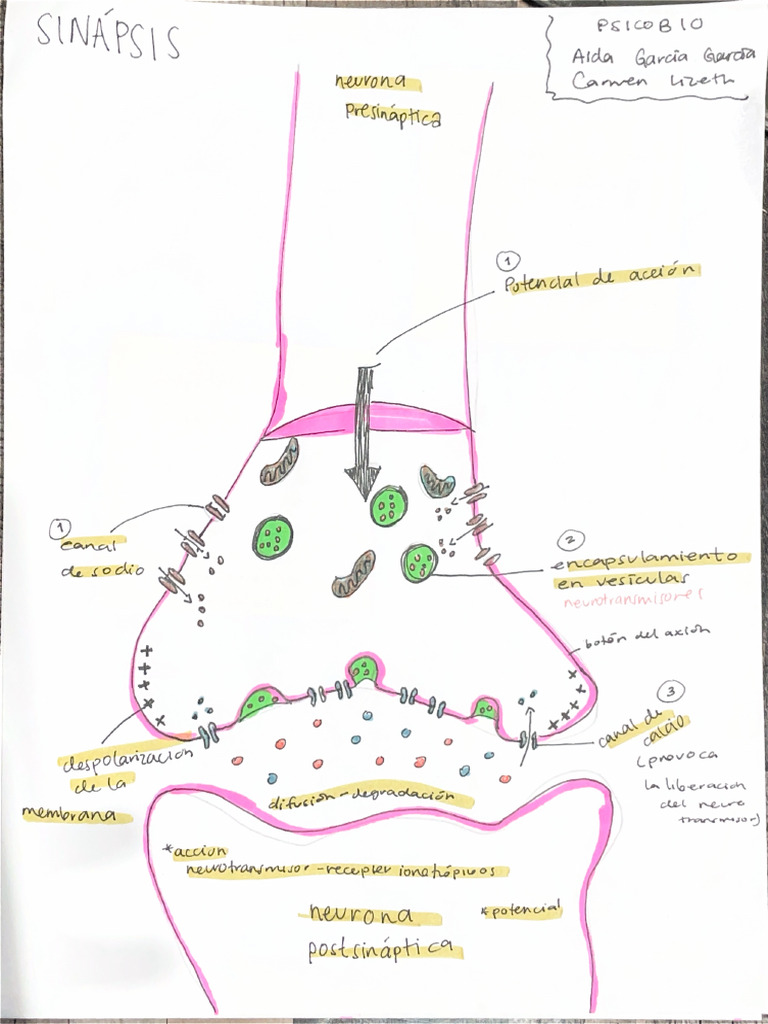 SINÁPSIS
PSICOBIO
Aida García García
Carmen Lizeth
neurona
presináptica
1
Potencial de acción
1
canal
de sodio
2
encapsulamiento
en vesículas
neurotransmisores
botón del axión
3
canal de
calcio
(provoca
la liberación
del neuro
transmisor)
despolarización
de la
membrana
difusión-degradación
*accion
neurotransmisor-recepter ionotrópicos
neurona
postsináptica
*potencial